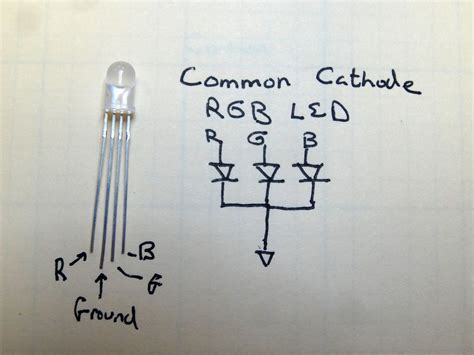 Common Cathode
RGB LED
R G B
R
B
G
Ground